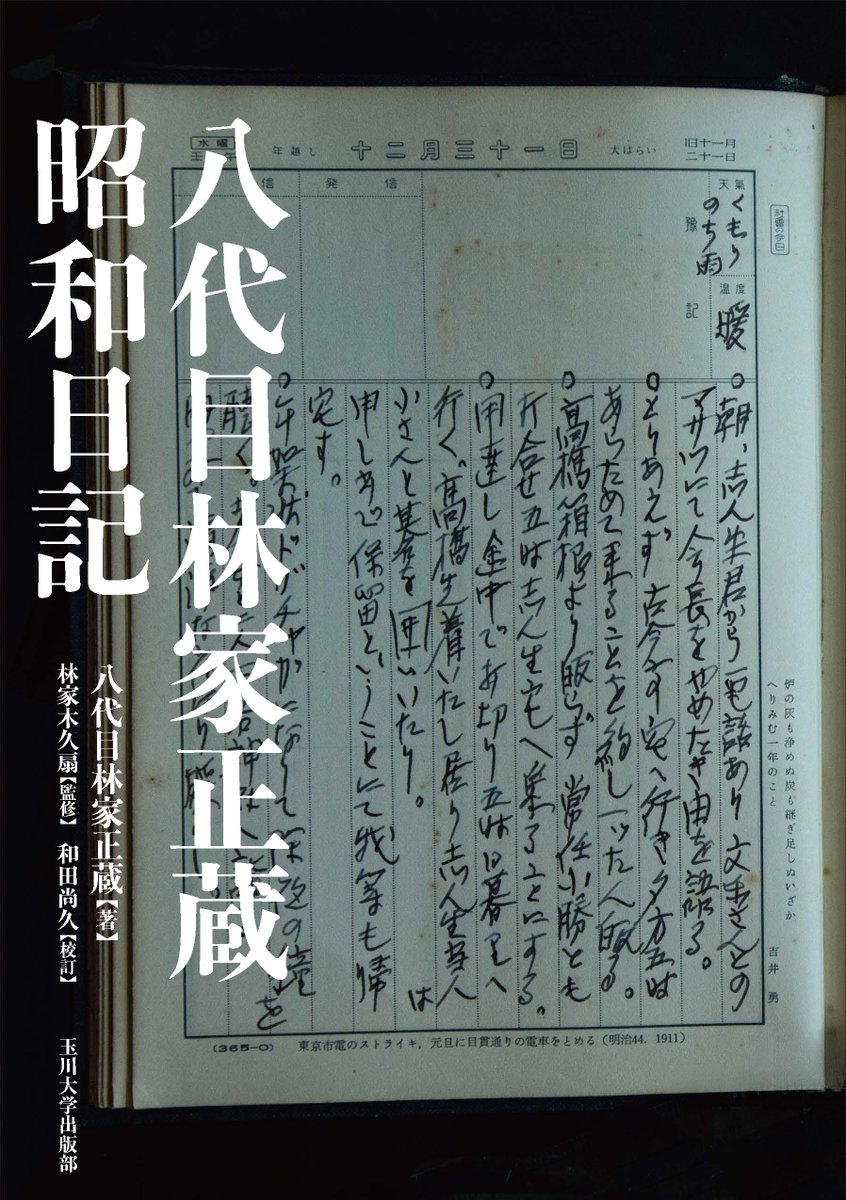 八代目林家正蔵
昭和日記
八代目林家正蔵【著】
林家木久扇【監修】 和田尚久【校訂】
玉川大学出版部
旧十一月
二十一日
大はらい
十二月三十一日
年越し
水曜
壬午
社会の今日
天気
くもり
のち雨
温度
暖
豫記
発信
受信
○朝、志ん生君から電話あり 文楽さんとの
マサツにて会長をやめたき由を語る。
○とりあえず 古今亭宅へ行き夕方五時
あらためて来ることを約し一ッたん帰る。
○高橋箱根より帰らず 常任小勝とも
打合せ五時志ん生宅へ集ることにする。
○用達し途中で打切り五時日暮里へ
行く。高橋先着いたし居り志ん生当人は
小さんと碁を囲いいたり。
申し出で保留ということにて我等も帰
宅す。
炉の灰も浄めぬ炭も継ぎ足しぬいざか
へりみむ一年のこと
吉井勇
(365-0)
東京市電のストライキ，元旦に目貫通りの電車をとめる（明治44. 1911）